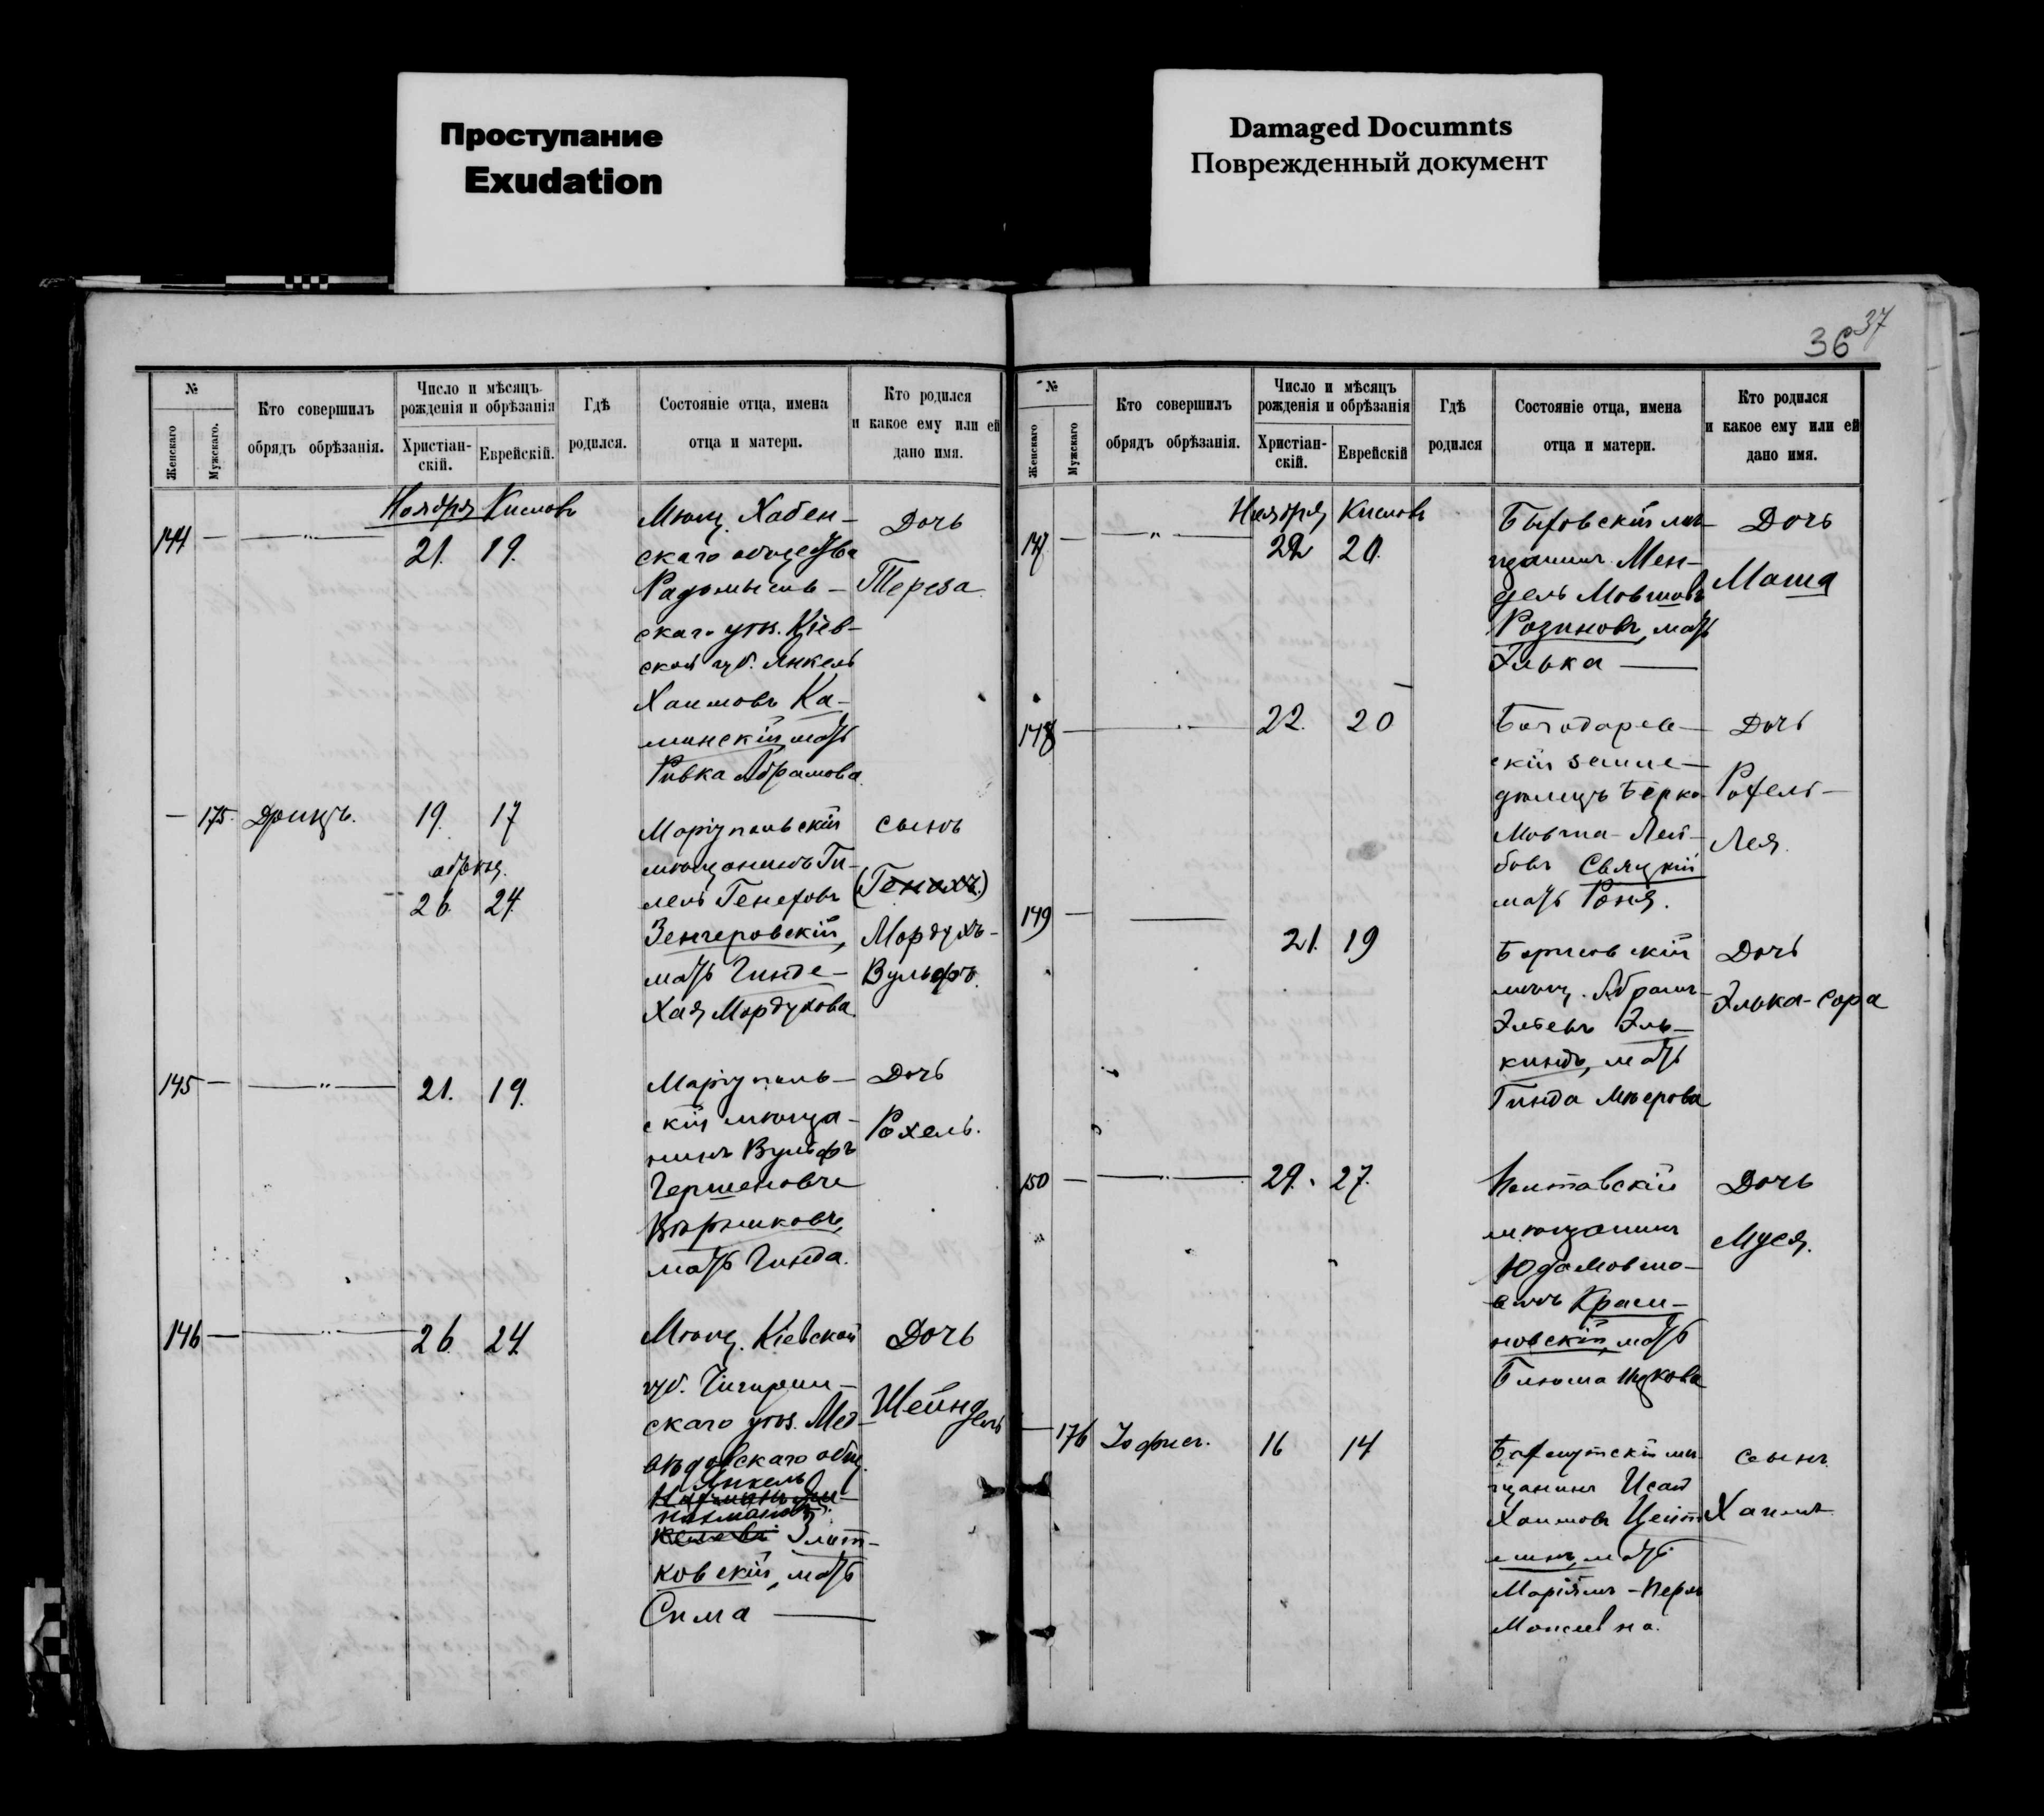 Проступание
Exudation
Damaged Documnts
Поврежденный документ
36 37
№
Женскаго
Мужскаго.
Кто совершилъ
обрядъ обрѣзанія.
Число и мѣсяцъ
рожденія и обрѣзанія
Христіан-
скій.
Еврейскій.
Гдѣ
родился.
Состояніе отца, имена
отца и матери.
Кто родился
и какое ему или ей
дано имя.
Ноября Кислевъ
144 — — 21. 19.
Мѣщ. Хабен-
скаго общества
Радомысль-
скаго уѣз. Кіев-
ской губ. Янкель
Хаимовъ Ка-
минскій, мать
Ривка Абрамова
Дочь
Тереза
— 175. 19. 17
обрѣз.
26. 24.
Маріупольскій
мѣщанинъ Ги-
лель Генеховъ
Зенгеровскій,
мать Гинде-
Хая Мордухова.
сынъ
(Генохъ.)
Мордухъ-
Вульфъ.
145 — — 21. 19.
Маріуполь-
скій мѣща-
нинъ Вульфъ
Гершеновъ
мать Гинда.
Дочь
Рохель.
146 — — 26. 24.
Мѣщ. Кіевской
губ. Чигирин-
скаго уѣз. Мед-
вѣдовскаго общ.
Янкель
Нахмановъ
Злат-
ковскій, мать
Сима —
Дочь
Шейндель
№
Женскаго
Мужскаго
Кто совершилъ
обрядъ обрѣзанія.
Число и мѣсяцъ
рожденія и обрѣзанія
Христіан-
скій.
Еврейскій
Гдѣ
родился
Состояніе отца, имена
отца и матери.
Кто родился
и какое ему или ей
дано имя.
Ноября Кислевъ
147 — — 22 20.
Быховскій мѣ-
щанинъ Мен-
дель Мовшовъ
Розиновъ, мать
Элька —
Дочь
Маша
148 — — 22. 20
Богодаров-
скій земле-
дѣлецъ Берко-
Мовша-Лей-
бовъ Свяцкій
мать Роня.
Дочь
Рохель-
Лея.
149 — — 21. 19
Борисовскій
мѣщ. Абрамъ-
Эль-
киндъ, мать
Гинда Меерова
Дочь
Элька-Сора
150 — — 29. 27.
Полтавскій
мѣщанинъ
Юда Мовшо-
вичъ Краси-
новскій, мать
Блюма Ицкова
Дочь
Муся.
— 176 16 14
Бахмутскій мѣ-
щанинъ Исай
Хаимовъ Цейт-
линъ, мать
Маріямъ-Перль
Моисеевна.
сынъ
Хаимъ